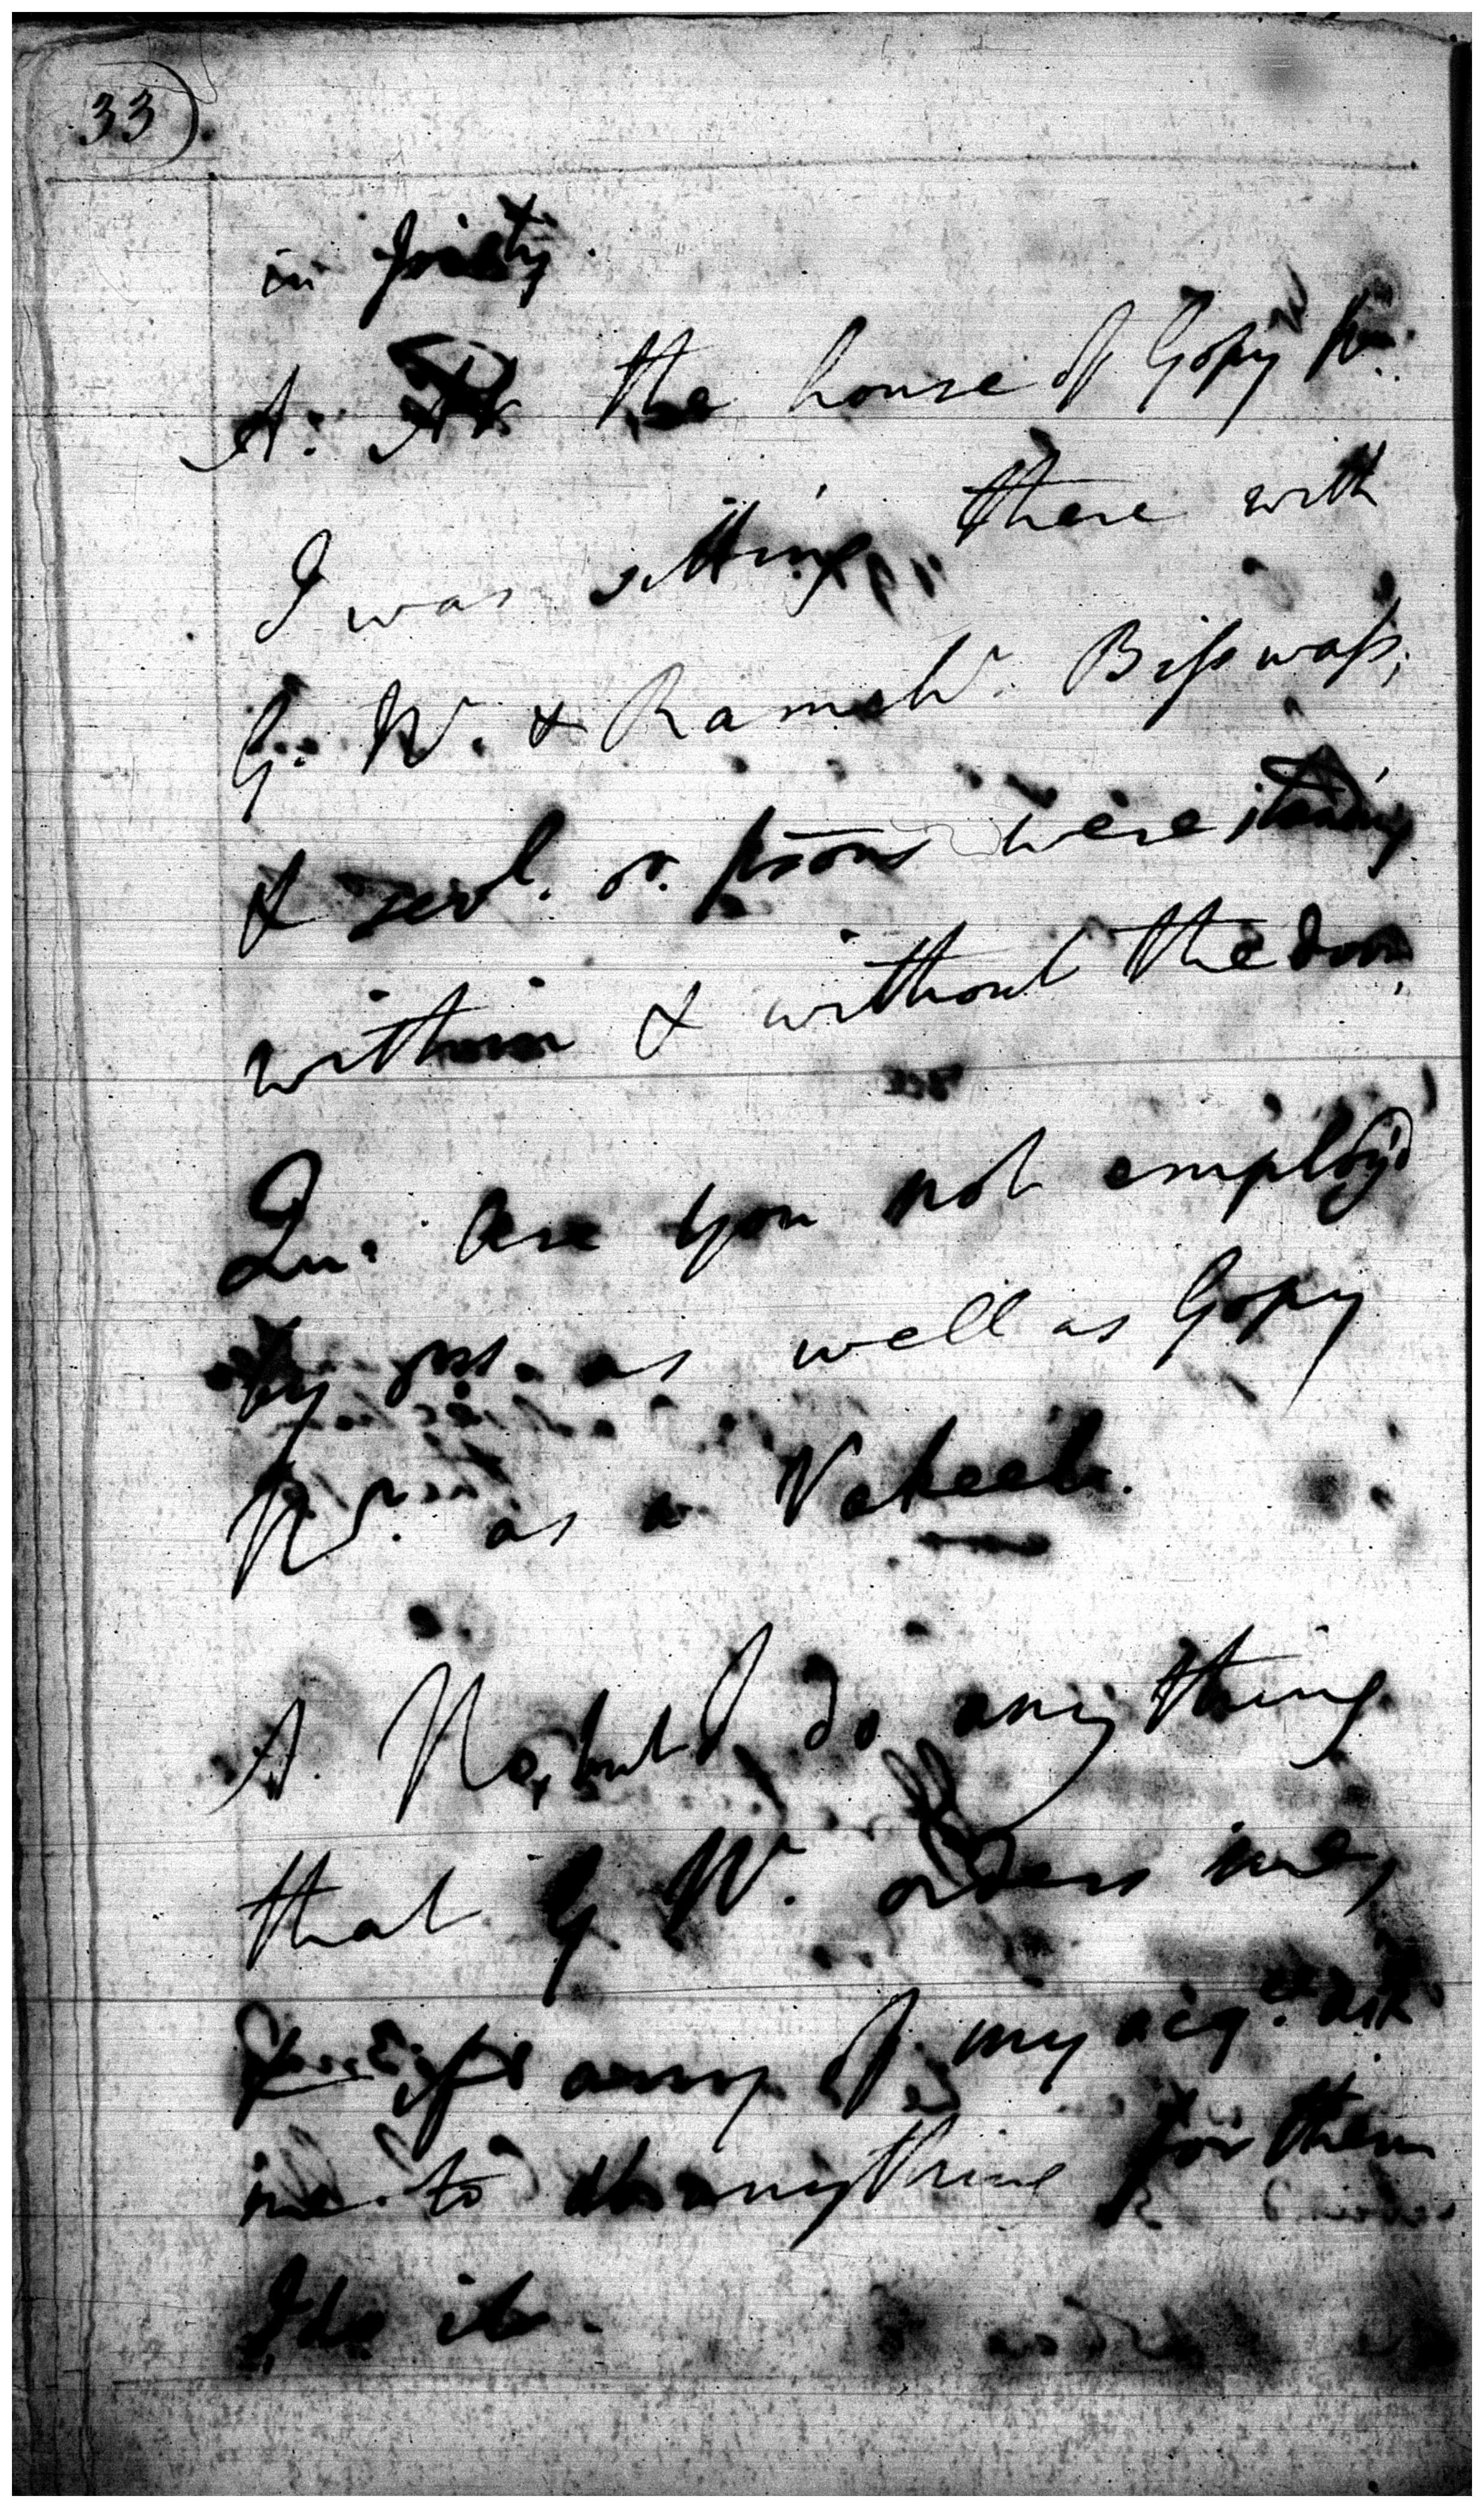 33)
in
A: At the house of Gopy
I was sitting there with
G. W. & Ramchr. Bisswass,
& sevl. or. psons were standing
within & without the door,
Qu: Are you not employ'd
by as well as Gopy
Nr. as a Vakeel.
A. No, but I do any thing
that G W. orders me,
if any of my acqce. ask
me to do anything for them
I do it.